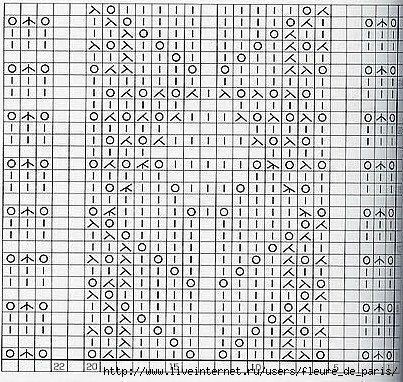 22 20 15 10 5 1
http://www.liveinternet.ru/users/fleure_de_paris/